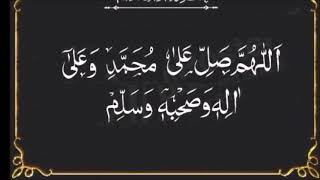 اَللّٰهُمَّ صَلِّ عَلٰى مُحَمَّدٍ وَعَلٰٓى
اٰلِهٖ وَصَحْبِهٖ وَسَلِّمْ